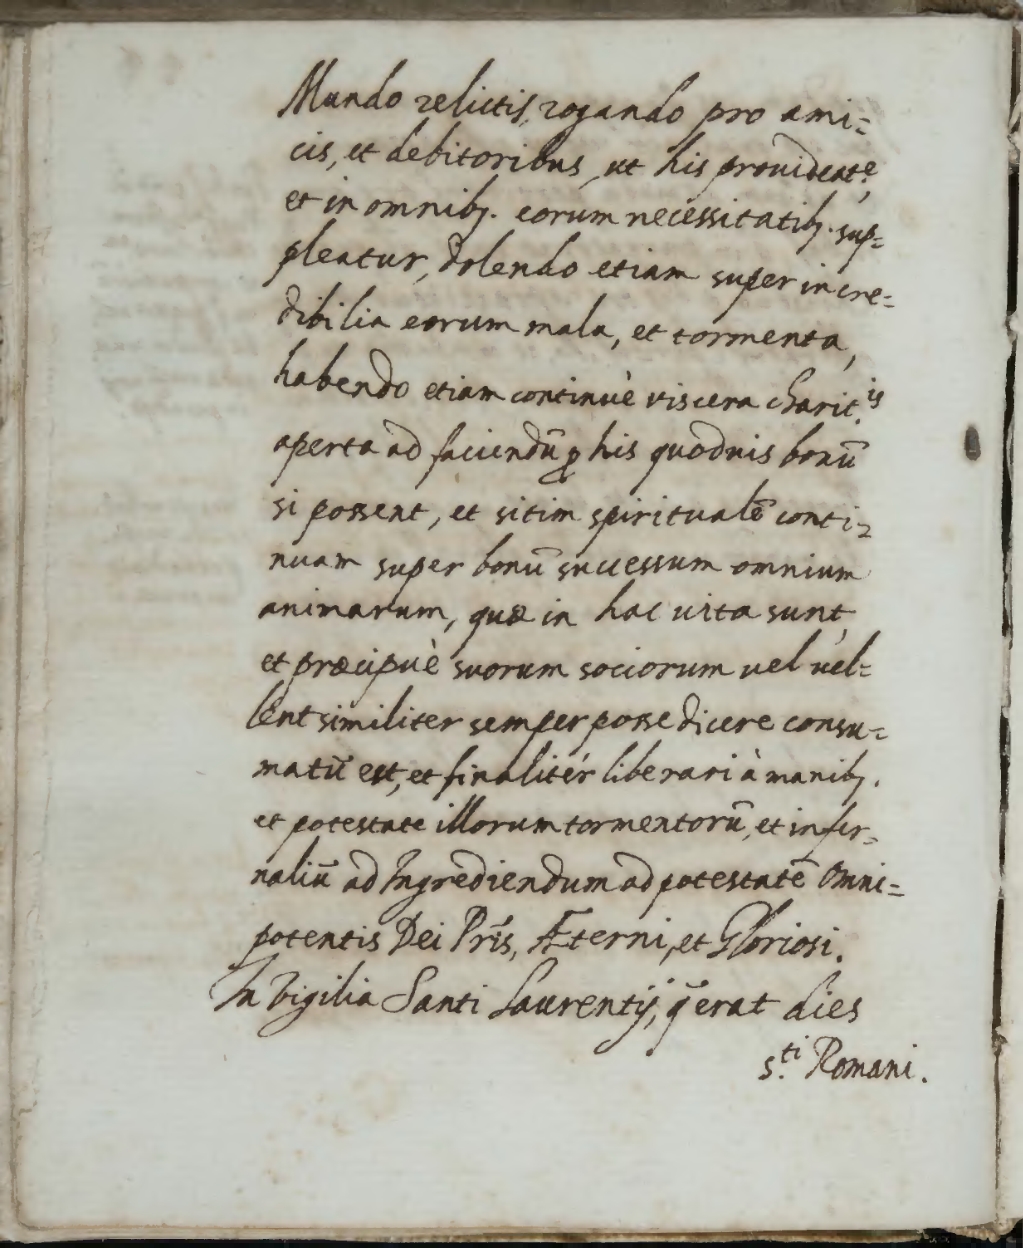 Mundo relictis, rogando pro ami=
cis, et debitoribus, ut his prouideat.r
et in omnibꝫ. eorum necessitatibꝫ. sup=
pleatur, dolendo etiam super incre=
dibilia eorum mala, et tormenta,
habendo etiam continuè viscera charit.is
aperta ad faciendū ꝓ his quoduis bonū
si possent, et sitim spiritualē conti=
nuam super bonū successum omnium
animarum, quæ in hac uita sunt,
et præcipuè suorum sociorum uel uel=
lent similiter semper posse dicere consu=
matū est, et finalitér liberari à manibꝫ.
et potestate illorum tormentorū, et infer=
naliū ad Ingrediendum ad potestatē Omni=
potentis Dei Pr̄is, Æterni, et Gloriosi.
In Vigilia Santi Laurentij, q̄ erat dies
s.ti Romani.